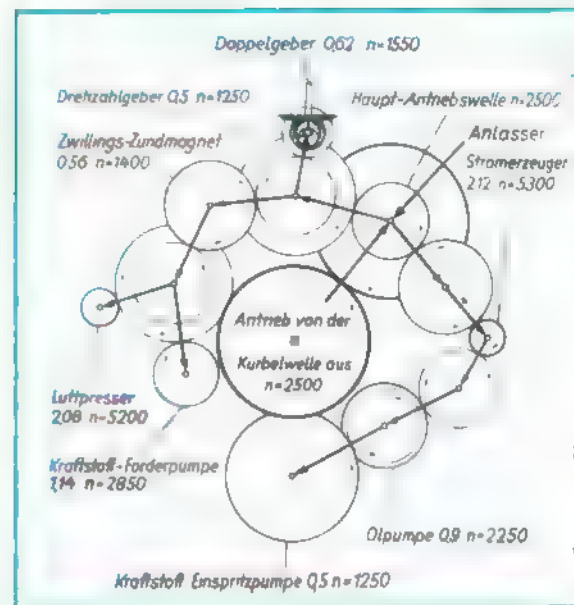 Doppelgeber 0,62 n=1550
Drehzahlgeber 0,5 n=1250
Haupt-Antriebswelle n=2500
Zwillings-Zundmagnet
0,56 n=1400
Anlasser
Stromerzeuger
2,12 n=5300
Antrieb von der
Kurbelwelle aus
n=2500
Luftpresser
2,08 n=5200
Kraftstoff-Forderpumpe
1,14 n=2850
Olpumpe 0,9 n=2250
Kraftstoff Einspritzpumpe 0,5 n=1250